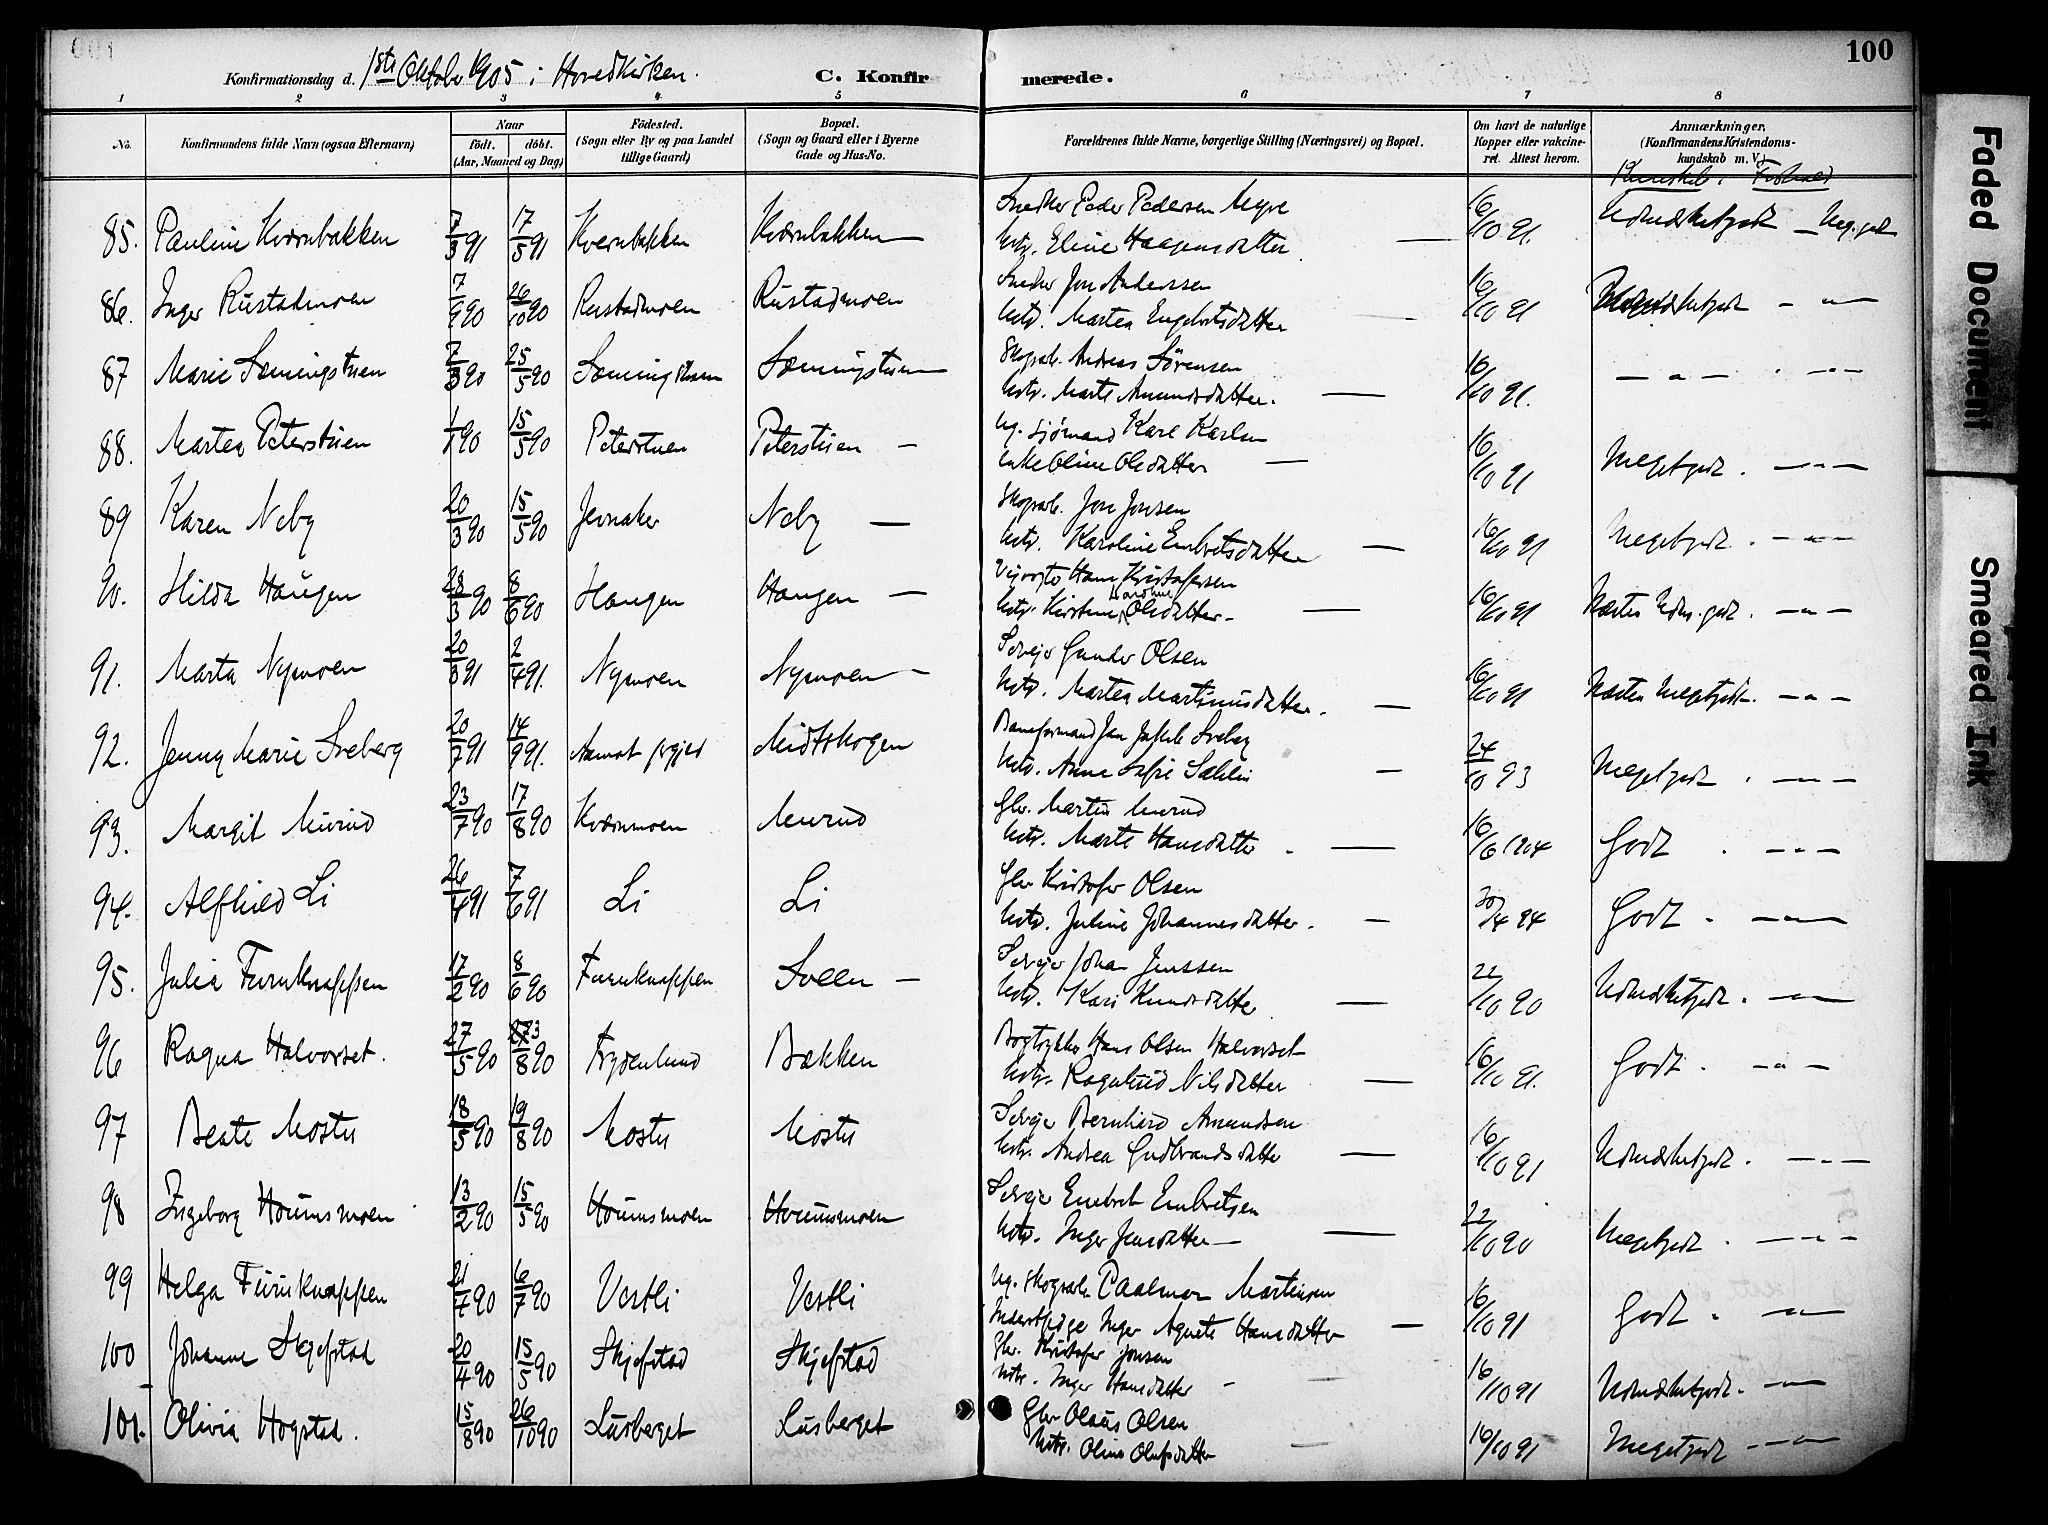 100
Konfirmationsdag d. 1ste Oktober 1905 i Hovedkirken.
C. Konfirmerede.
1 2 3 4 5 6 7 8
No. Konfirmandens fulde Navn (ogsaa Efternavn) Naar født. døbt. (Aar, Maaned og Dag) Fødested. (Sogn eller By og paa Landet tillige Gaard) Bopæl. (Sogn og Gaard eller i Byerne Gade og Hus-No. Forældrenes fulde Navne, borgerlige Stilling (Næringsvei) og Bopæl. Om havt de naturlige Kopper eller vakcineret. Attest herom. Anmærkninger. (Konfirmandens Kristendomskundskab m. V.)
85. Pauline Kværnbakken 7/3 91 17/5 91 Kvernbakken Kværnbakken Snedker Peder Pedersen Myre
Hstr. Eline Haagensdatter 16/10 91. Udmærketgodt — Meg. godt
86. Inger Rustadmoen 7/9 90 26/10 90 Rustadmoen Rustadmoen Jon Anderssen
Hstr. Martea Engebretsdatter 16/10 91 Udmærketgodt - „ —
87 Marie Sæmingstuen 7/3 90 25/5 90 Sæmingstuen Sæmingstuen Skogsarb. Andreas Sørensen
Hstr. Marte Amundsdatter. 16/10 91. — „ — - „ —
88. Martea Peterstuen 1/1 90 15/5 90 Peterstuen Peterstuen — Ug. Sjømand Karl Karlsen
Enke Oline Olsdatter 16/10 91 Megetgodt. — „ —
89 Karen Neby 20/3 90 15/5 90 Jevnaker Neby — Skogsarb. Jon Jonsen
Hstr. Karoline Embretsdatter 16/10 91 Megetgodt. — „ —
90. Hilda Haugen 28/3 90 8/6 90 Haugen Haugen — Hans Kristofersen
Hstr. Kirstine Olsdatter 16/10 91 Næsten Udm. godt. — „ —
91. Marta Nymoen 20/3 91 2/4 91. Nymoen Nymoen — Selveier Gunder Olsen
Hstr. Martea Martinusdatter. 16/10 91 Næsten Megetgodt. — „ —
92. Jenny Marie Sveberg 20/7 91 14/9 91. Aamot prgjeld Midtskogen Baneformand Jan Jakob Sveberg
Hstr. Anne Sofie Sæhlie 24/10 93 Megetgodt. — „ —
93. Margit Murud 23/7 90 17/8 90 Kværnmoen Murud Gbr. Martin Murud
Hstr. Marte Hansdatter. 16/6 1904 Godt. — „ —
94. Alfhild Li 26/4 91 7/6 91 Li Li Gbr. Kristofer Olsen
Hstr. Juline Johannesdatter. 30/4 94 Godt. — „ —
95. Julia Furuknappen 17/2 90 8/6 90 Furuknappen Sveen — Selveier Johan Jenssen
Hstr. Kari Knudsdatter 22/10 90 Udmærketgodt. — „ —
96 Ragna Halvorset. 27/5 90 3/8 90 Frydenlund Bækken Bogtrykker Hans Olsen Halvorset
Hstr. Ragnhild Nilsdatter 16/10 91. Godt. — „ —
97 Beate Moster 18/5 90 19/8 90 Moster Moster Selveier Bernhard Amundsen
Hstr. Andrea Gudbrandsdatter 16/10 91 Udmærketgodt. — „ —
98 Ingeborg Hournsmoen 13/2 90 15/5 90 Hournsmoen Hournsmoen Selveier Embret Embretsen
Hstr. Inger Jensdatter — 22/10 90 Megetgodt. — „ —
99 Helga Furuknappen 21/4 90 6/7 90 Vestli Vestli Ug. Skogsarb. Paalmar Martinsen
Inger Agnete Hansdatter 16/10 91 Godt. — „ —
100 Johanne Skjefstad 20/4 90 15/5 90 Skjefstad Skjefstad Gbr. Kristofer Jonsen
Hstr. Inger Hansdatter 16/10 91 Udmærketgodt. — „ —
101. Olivia Hogstad. 15/8 90 26/10 90 Lusberget Lusberget Gbr. Olaus Olsen
Hstr. Oline Olufsdatter 16/10 91 Megetgodt — „ —
Faded Document
Smeared Ink